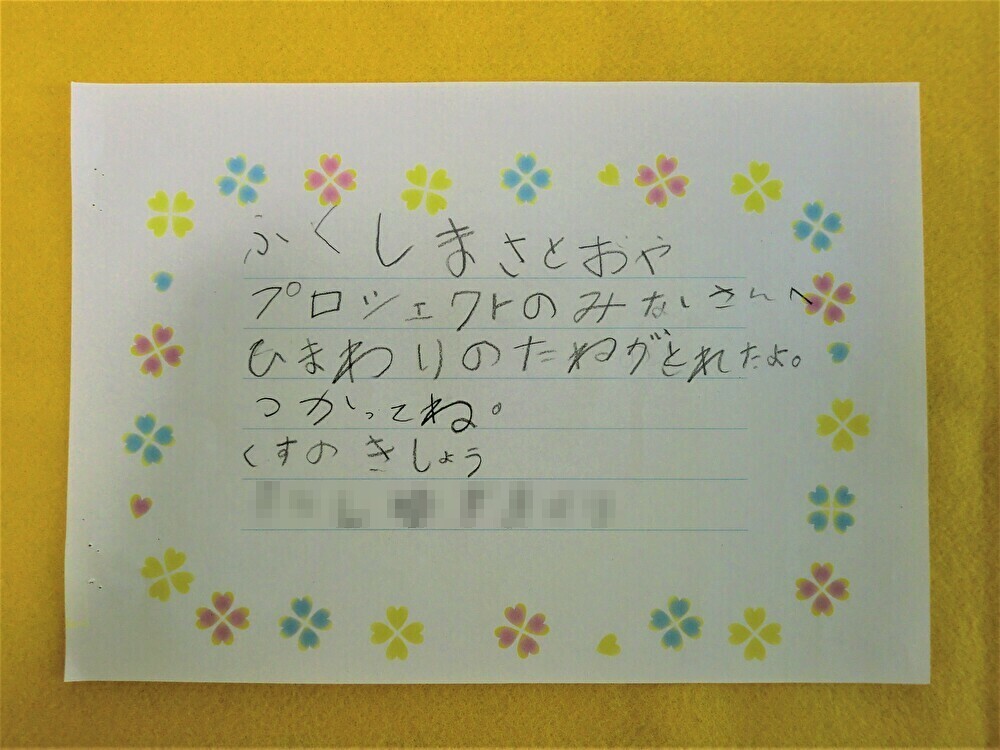 ふくしまさとおや
プロジェクトのみなさんへ
ひまわりのたねがとれたよ。
つかってね。
くすのきしょう